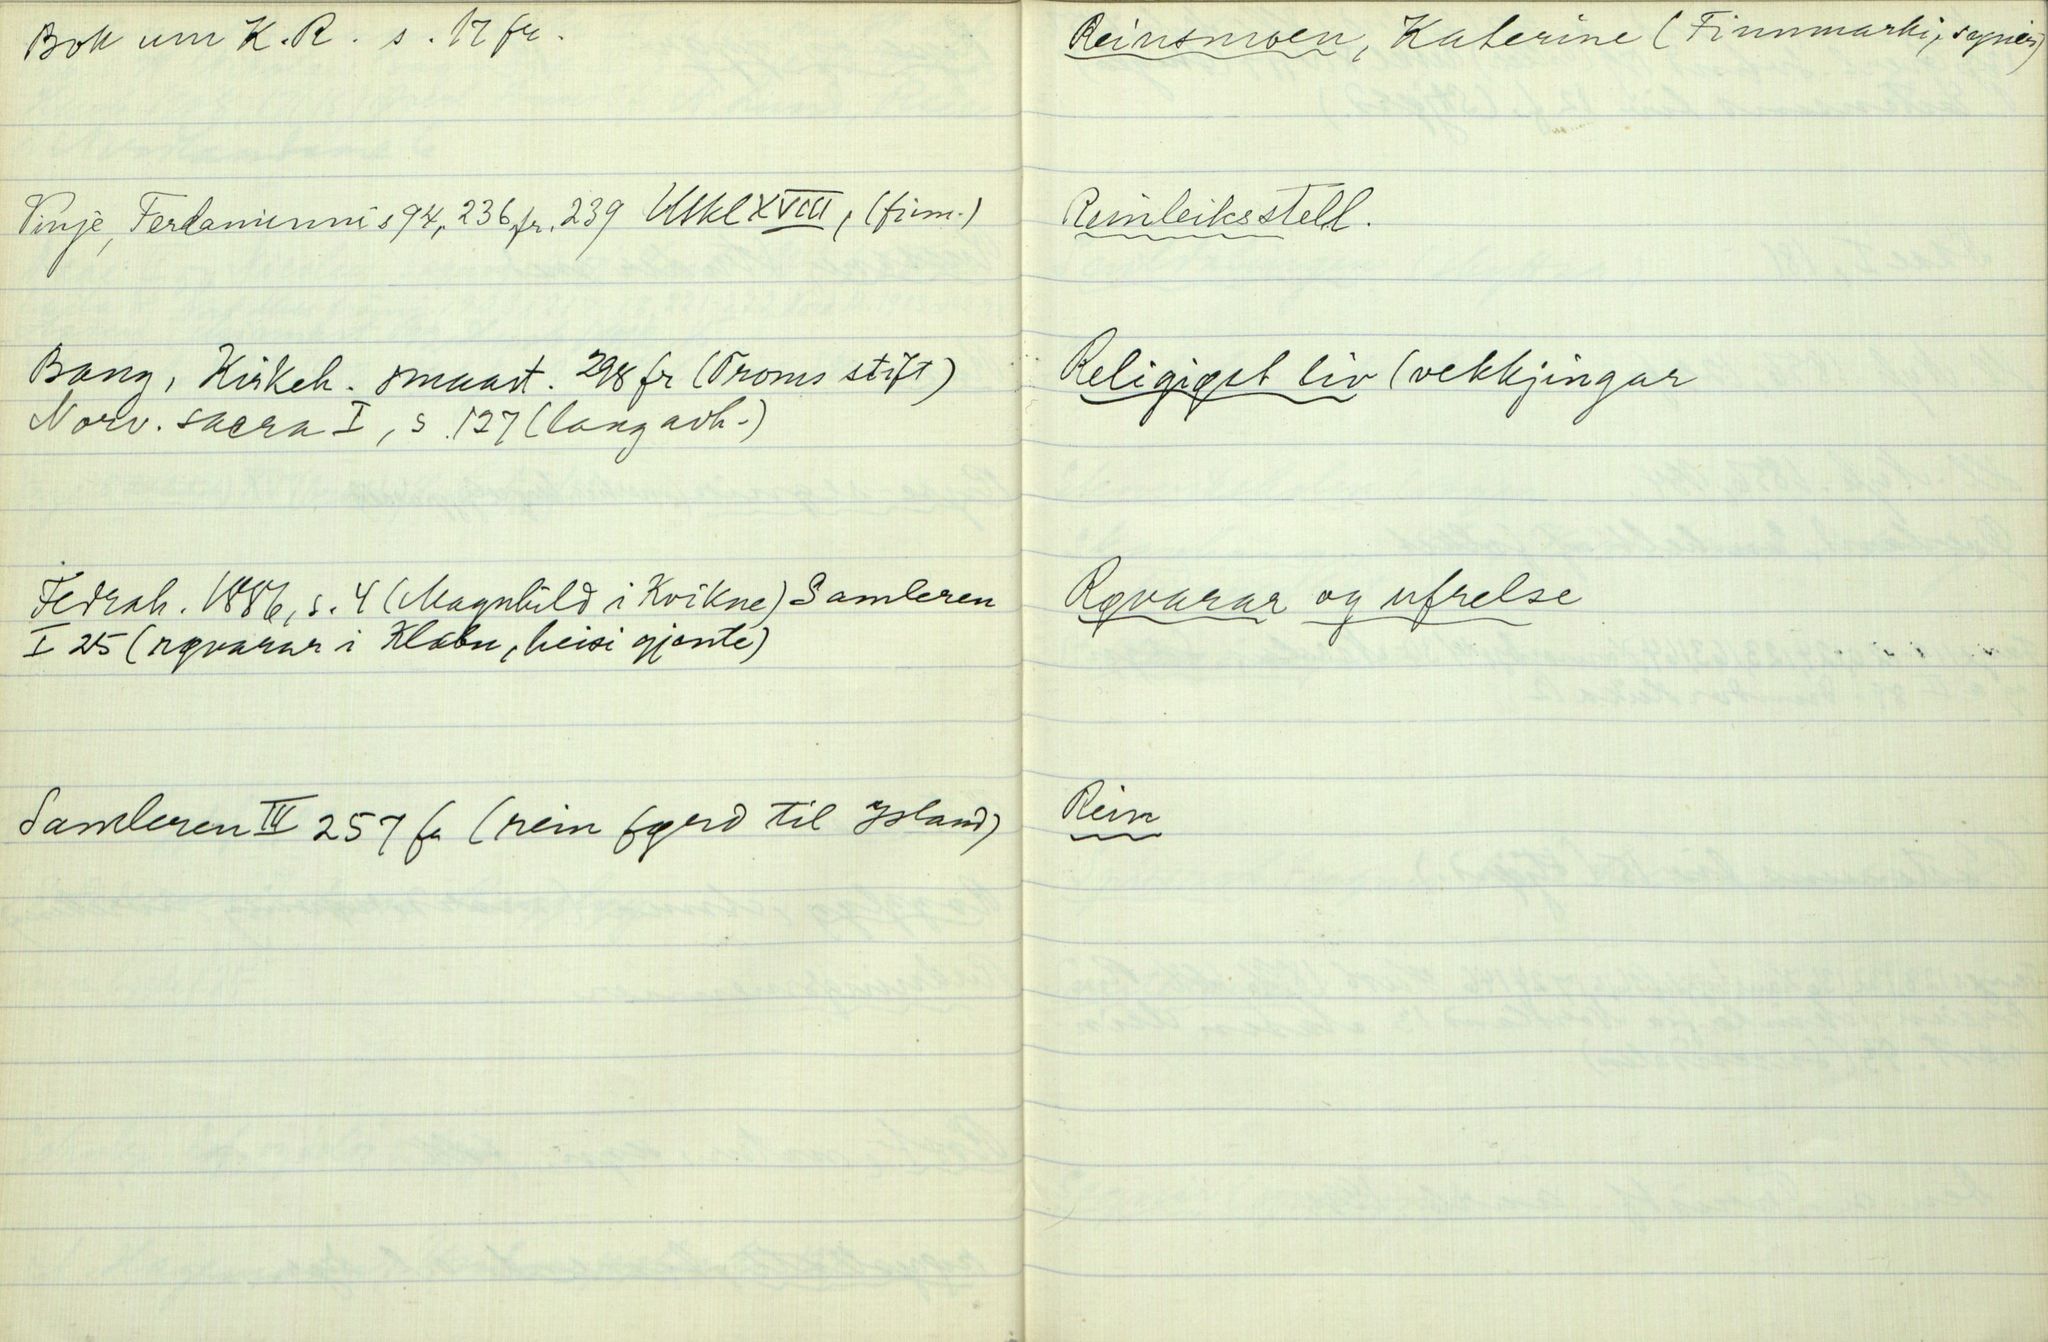 Bok um K.R. s. 17 fr.
Vinje, Ferdaminni s 94, 236 fr. 239 Utkl XVIII, (finn.)
Bang, Kirkeh. smaast. 298 fr (Troms stift)
Norv. sacra I, s. 127 (langavh.)
Fedrah. 1886, s. 4 (Magnhild i Kvikne) Samleren
I 25 (røvarar i Klæbu, heisi gjente)
Samleren IV 257 fr (rein førd til Island)
Reinsmoen, Katerine (Finnmarki, synier)
Reinleiksstell.
Religiøst liv (vekkjingar
Røvarar og ufrelse
Rein